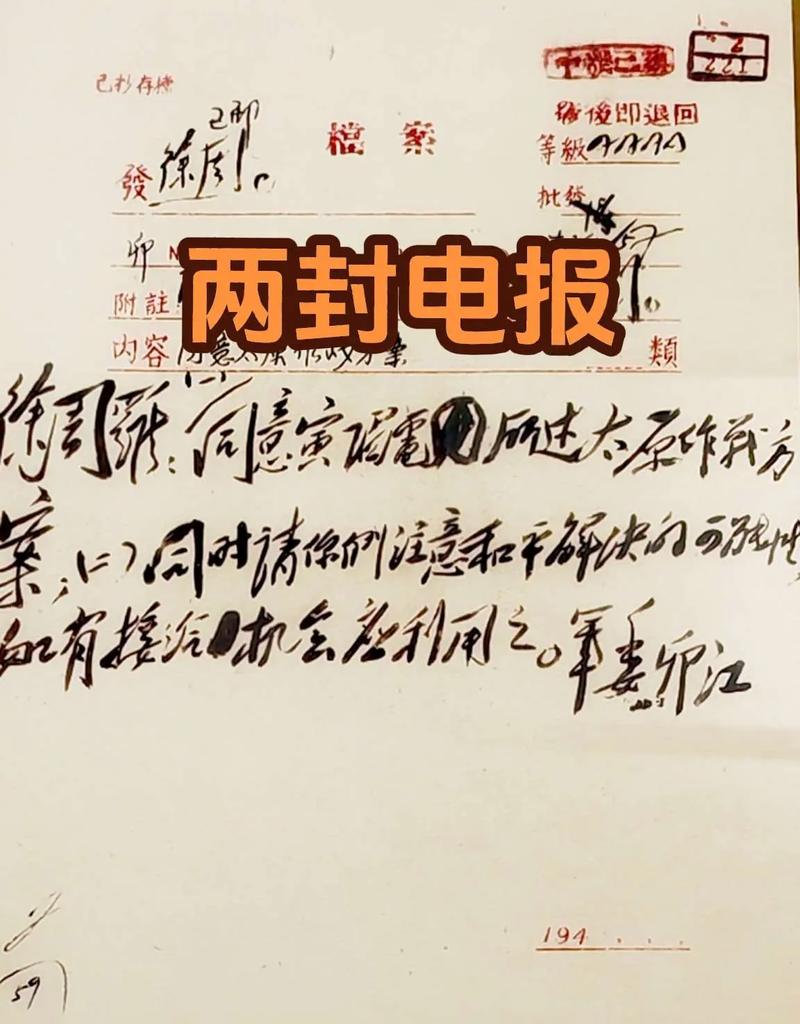 已抄存档
後即退回
檔案
等級AAAA
發 徐周
批發
卯
两封电报
附註
内容 同意太原作战方案
類
徐周羅：(一)同意寅 電 所述太原作战方
案；(二)同时請你们注意和平解决的可能性，
如有接洽机会应利用之。軍委 卯江
194....
59